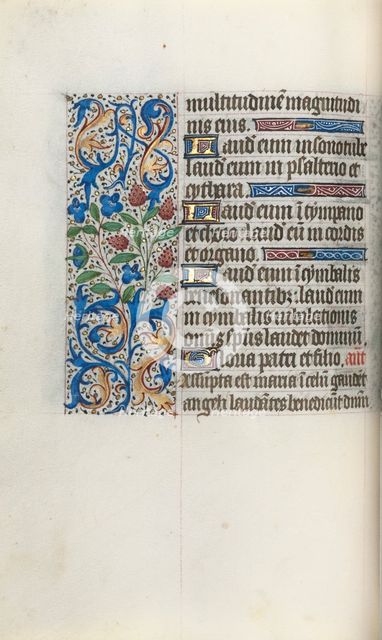 multitudinē magnitudi
nis eius.
Laud eum in sono tube
laud eum in psalterio et
cythara.
Laud eum ī tympano
et choro: laud eū in cordis
et organo.
Laud eum ī cymbalis
laud eum
in cymbalis iubilationis
omīs spūs laudet dominū.
Gloria patri et filio. añt
Assūpta est maria ī celū gaudēt
angeli laudātes benedicūt dnm